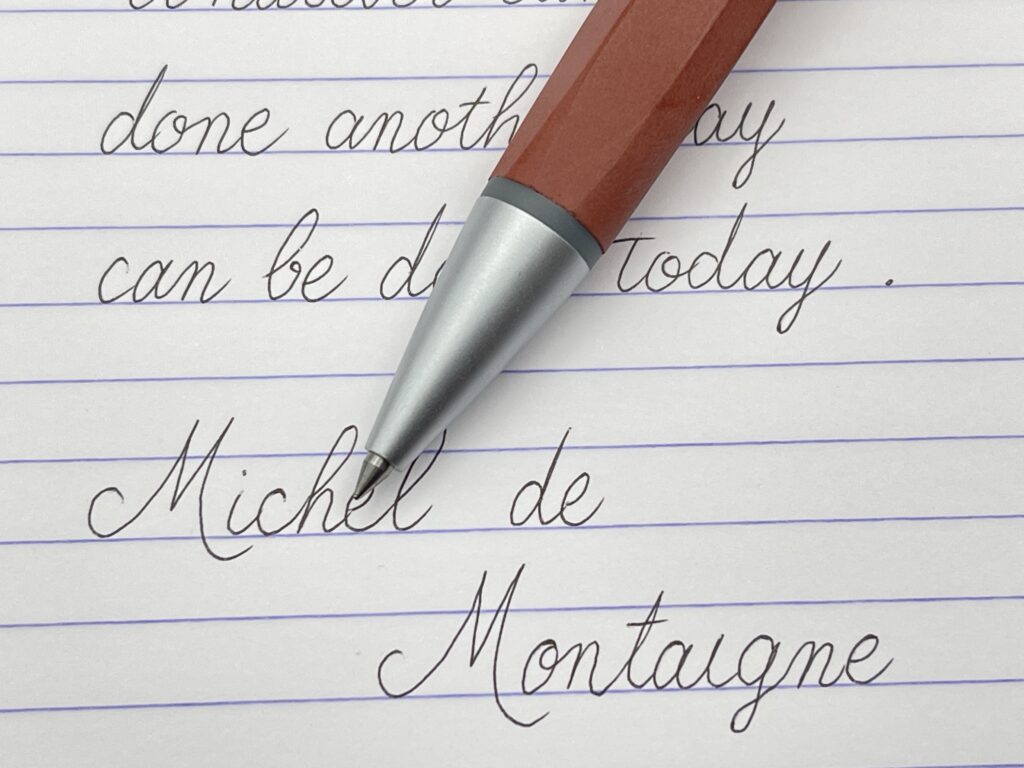 done anoth ay
can be do today .
Michel de
Montaigne